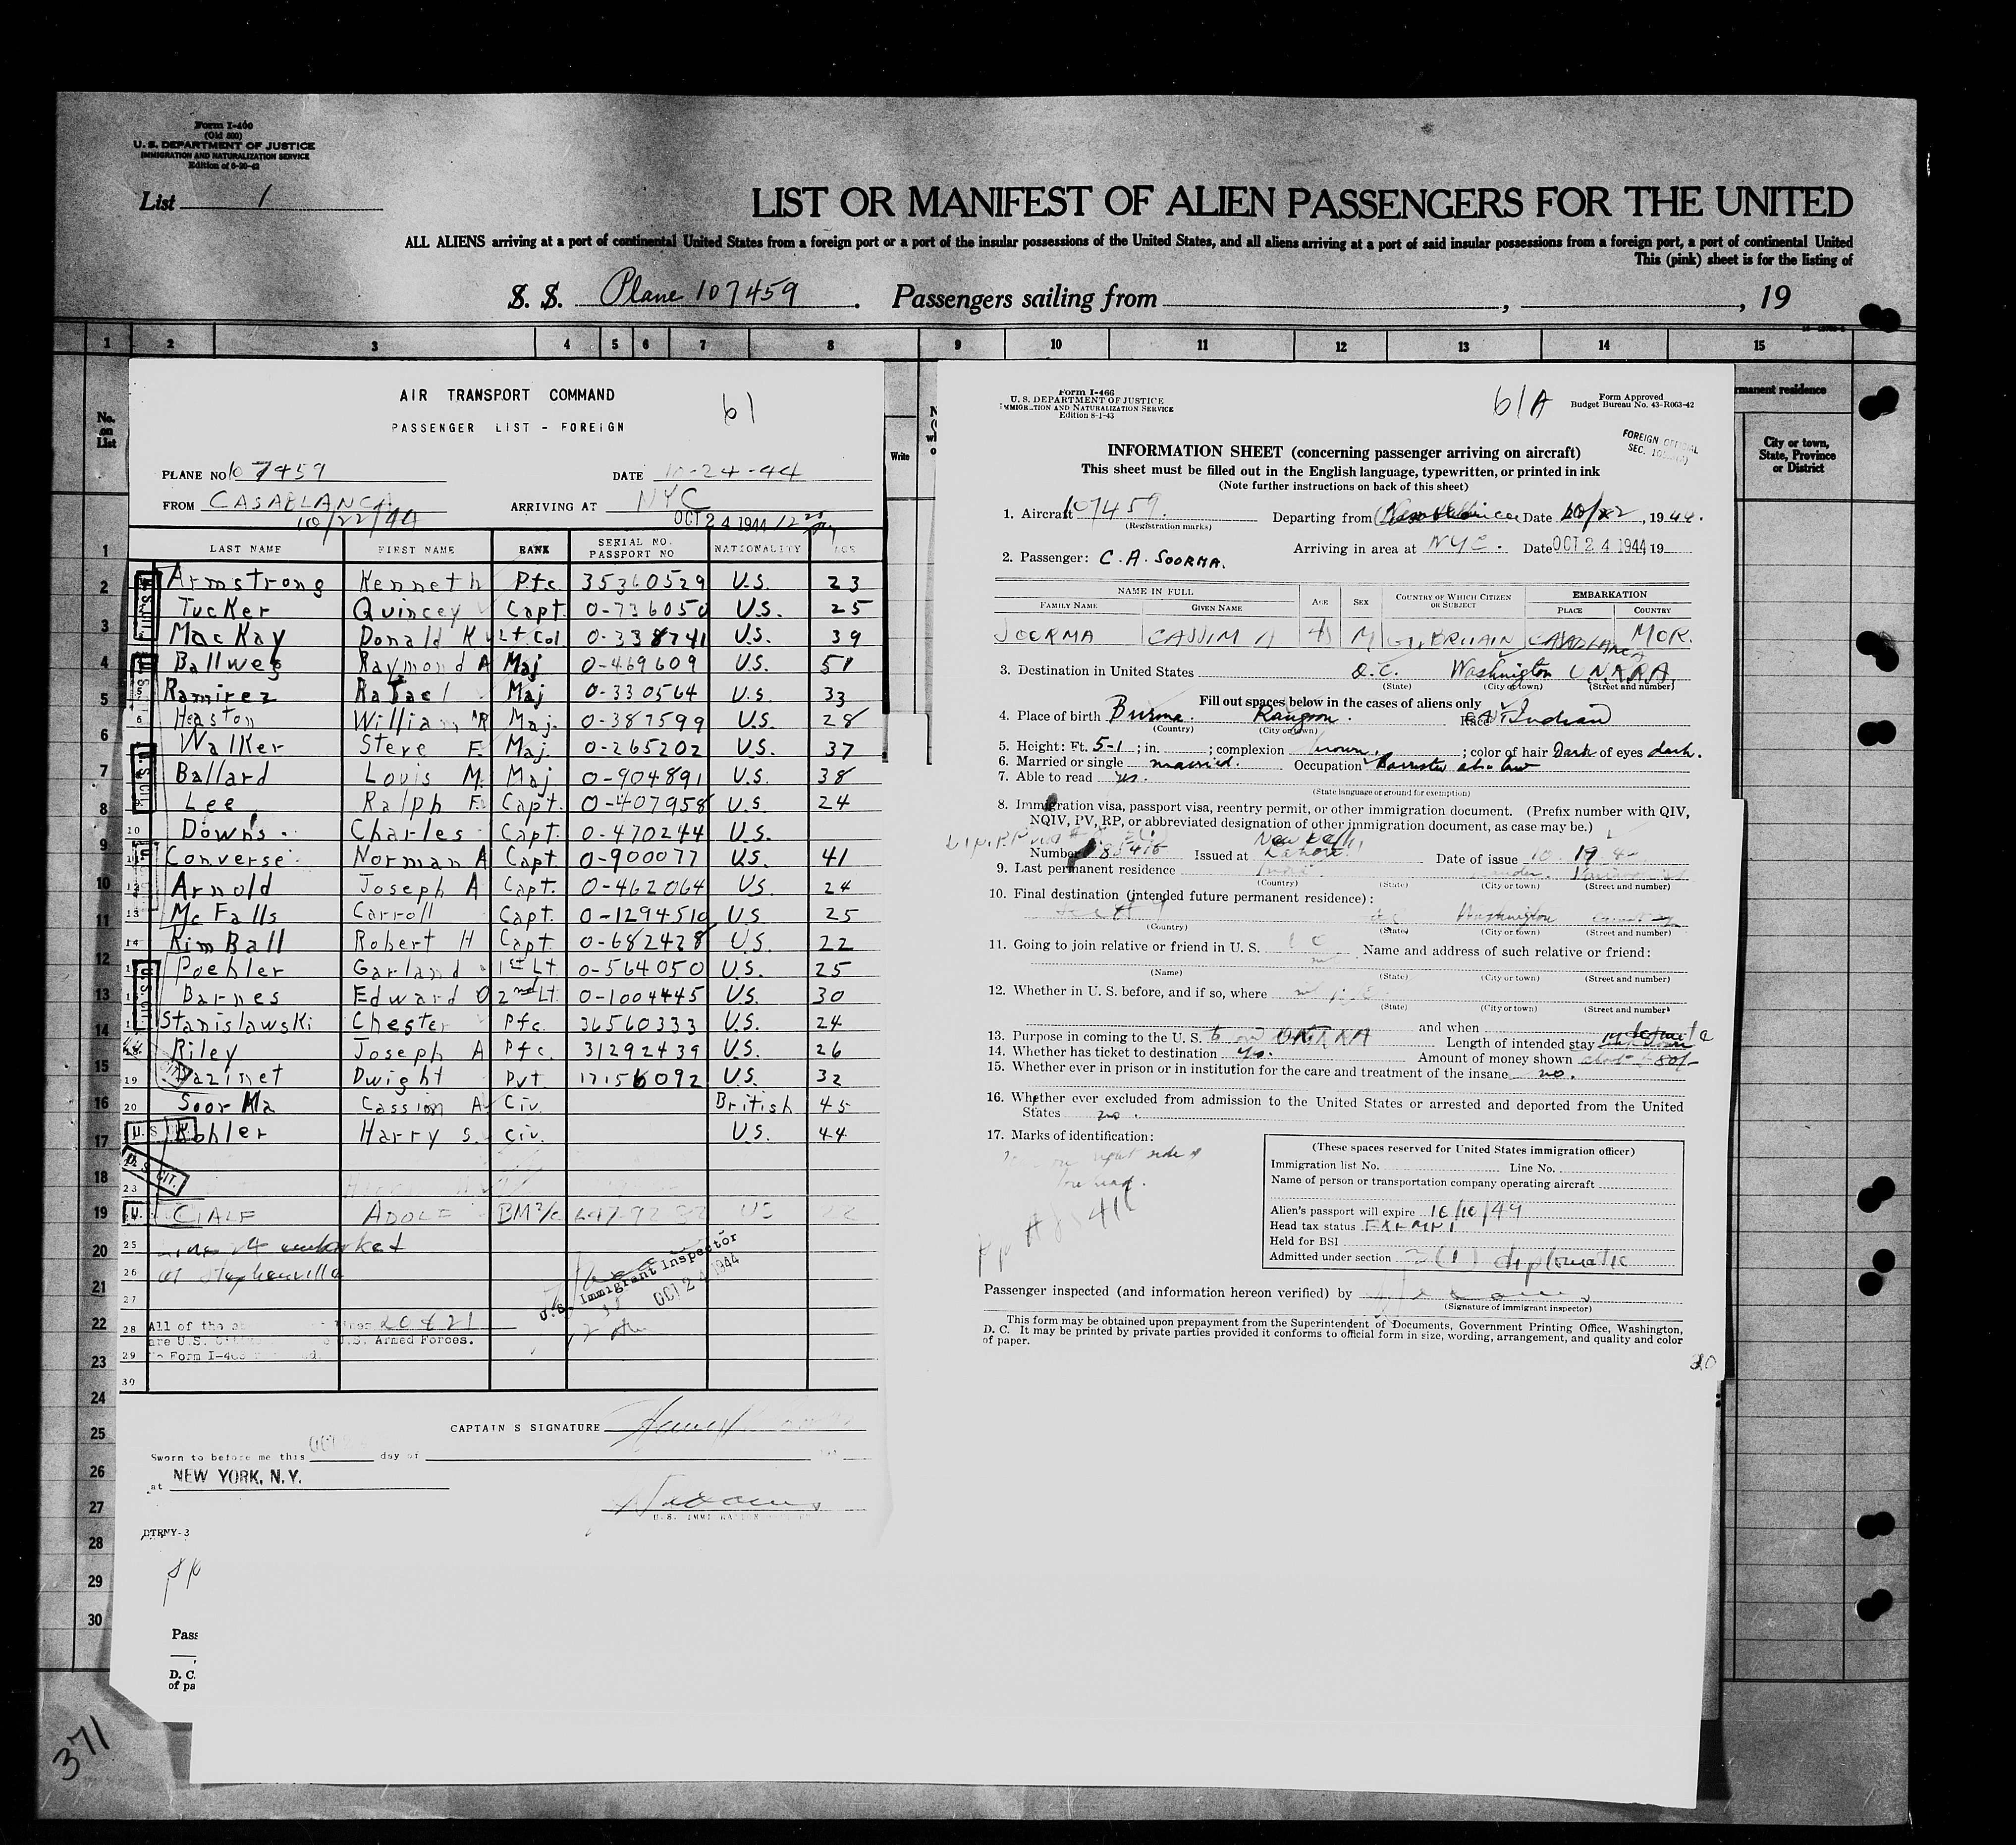 Form I-466
(Old 500)
U. S. DEPARTMENT OF JUSTICE
IMMIGRATION AND NATURALIZATION SERVICE
List 1
LIST OR MANIFEST OF ALIEN PASSENGERS FOR THE UNITED
ALL ALIENS arriving at a port of continental United States from a foreign port or a port of the insular possessions of the United States, and all aliens arriving at a port of said insular possessions from a foreign port, a port of continental United
This (pink) sheet is for the listing of
S. S. Plane 107459. Passengers sailing from , , 19
1 2 3 4 5 6 7 8 9 10 11 12 13 14 15
No. on List
AIR TRANSPORT COMMAND 61
PASSENGER LIST - FOREIGN
PLANE NO 107459 DATE 10-24-44
FROM CASABLANCA ARRIVING AT NYC
10/22/44 OCT 24 1944
LAST NAME FIRST NAME RANK SERIAL NO. PASSPORT NO NATIONALITY AGE
Armstrong Kenneth Pfc 35360529 U.S. 23
Tucker Quincey Capt. 0-736050 U.S. 25
MacKay Donald K Lt Col. 0-338741 U.S. 39
Ballweg Raymond A Maj 0-469609 U.S. 51
Ramirez Rafael Maj 0-330564 U.S 33
Heaston William R Maj. 0-387599 U.S. 28
Walker Steve F. Maj. 0-265202 U.S. 37
Ballard Louis M. Maj 0-904891 U.S. 38
Lee Ralph F. Capt. 0-407958 U.S 24
Downs Charles Capt. 0-470244 U.S.
Converse Norman A Capt 0-900077 U.S. 41
Arnold Joseph A Capt. 0-462064 U.S 24
McFalls Carroll Capt. 0-1294510 U.S 25
KimBall Robert H Capt 0-682428 U.S. 22
Poehler Garland 1st Lt. 0-564050 U.S. 25
Barnes Edward O 2nd Lt. 0-1004445 U.S. 30
Stanislawski Chester Pfc. 36560333 U.S. 24
Riley Joseph A Pfc. 31292439 U.S. 26
Dwight Pvt. 17156092 U.S. 32
SoorMa Cassion A Civ. British 45
Kohler Harry S. Civ. U.S. 44
CIALF ADOLF BM2/c US
at Stephenville
U.S. Immigrant Inspector
OCT 24 1944
All of the lines 20 & 21
are U.S. U.S. Armed Forces.
CAPTAIN S SIGNATURE
Sworn to before me this day of
at NEW YORK, N.Y.
DTRNY-3
Pass
D. C.
of pa
371
Form I-466 61A Form Approved
U. S. DEPARTMENT OF JUSTICE Budget Bureau No. 43-R063-42
IMMIGRATION AND NATURALIZATION SERVICE
Edition 8-1-43
INFORMATION SHEET (concerning passenger arriving on aircraft)
This sheet must be filled out in the English language, typewritten, or printed in ink
(Note further instructions on back of this sheet)
1. Aircraft 107459. Departing from Date 10/22, 1944.
(Registration marks)
Arriving in area at NYC. Date OCT 24 1944 19
2. Passenger: C. A. SOORMA.
NAME IN FULL AGE SEX COUNTRY OF WHICH CITIZEN OR SUBJECT EMBARKATION
FAMILY NAME GIVEN NAME PLACE COUNTRY
SOORMA CASSIM A 45 M GT. BRITAIN CASABLANCA MOR.
3. Destination in United States D.C. Washington UNRRA
(State) (City or town) (Street and number)
Fill out spaces below in the cases of aliens only
4. Place of birth Burma. Rangoon. Race Indian
(Country) (City or town)
5. Height: Ft. 5-1; in. ; complexion brown. ; color of hair Dark of eyes dark.
6. Married or single married. Occupation Barrister at law
7. Able to read yes.
(State language or ground for exemption)
8. Immigration visa, passport visa, reentry permit, or other immigration document. (Prefix number with QIV,
NQIV, PV, RP, or abbreviated designation of other immigration document, as case may be.)
New Delhi
Number Issued at Lahore Date of issue
9. Last permanent residence India
(Country) (State) (City or town) (Street and number)
10. Final destination (intended future permanent residence):
Washington
(Country) (State) (City or town) (Street and number)
11. Going to join relative or friend in U. S. Name and address of such relative or friend:
(Name) (State) (City or town) (Street and number)
12. Whether in U. S. before, and if so, where
(State) (City or town) (Street and number)
and when
13. Purpose in coming to the U. S. UNRRA Length of intended stay indefinite
14. Whether has ticket to destination yes. Amount of money shown about
15. Whether ever in prison or in institution for the care and treatment of the insane no.
16. Whether ever excluded from admission to the United States or arrested and deported from the United
States no.
17. Marks of identification:
right side of
forehead.
(These spaces reserved for United States immigration officer)
Immigration list No. Line No.
Name of person or transportation company operating aircraft
Alien's passport will expire 16/10/49
Head tax status EXEMPT
Held for BSI
Admitted under section 3(1) diplomatic
Passenger inspected (and information hereon verified) by
(Signature of immigrant inspector)
This form may be obtained upon prepayment from the Superintendent of Documents, Government Printing Office, Washington,
D. C. It may be printed by private parties provided it conforms to official form in size, wording, arrangement, and quality and color
of paper.
20
rmanent residence
City or town, State, Province or District